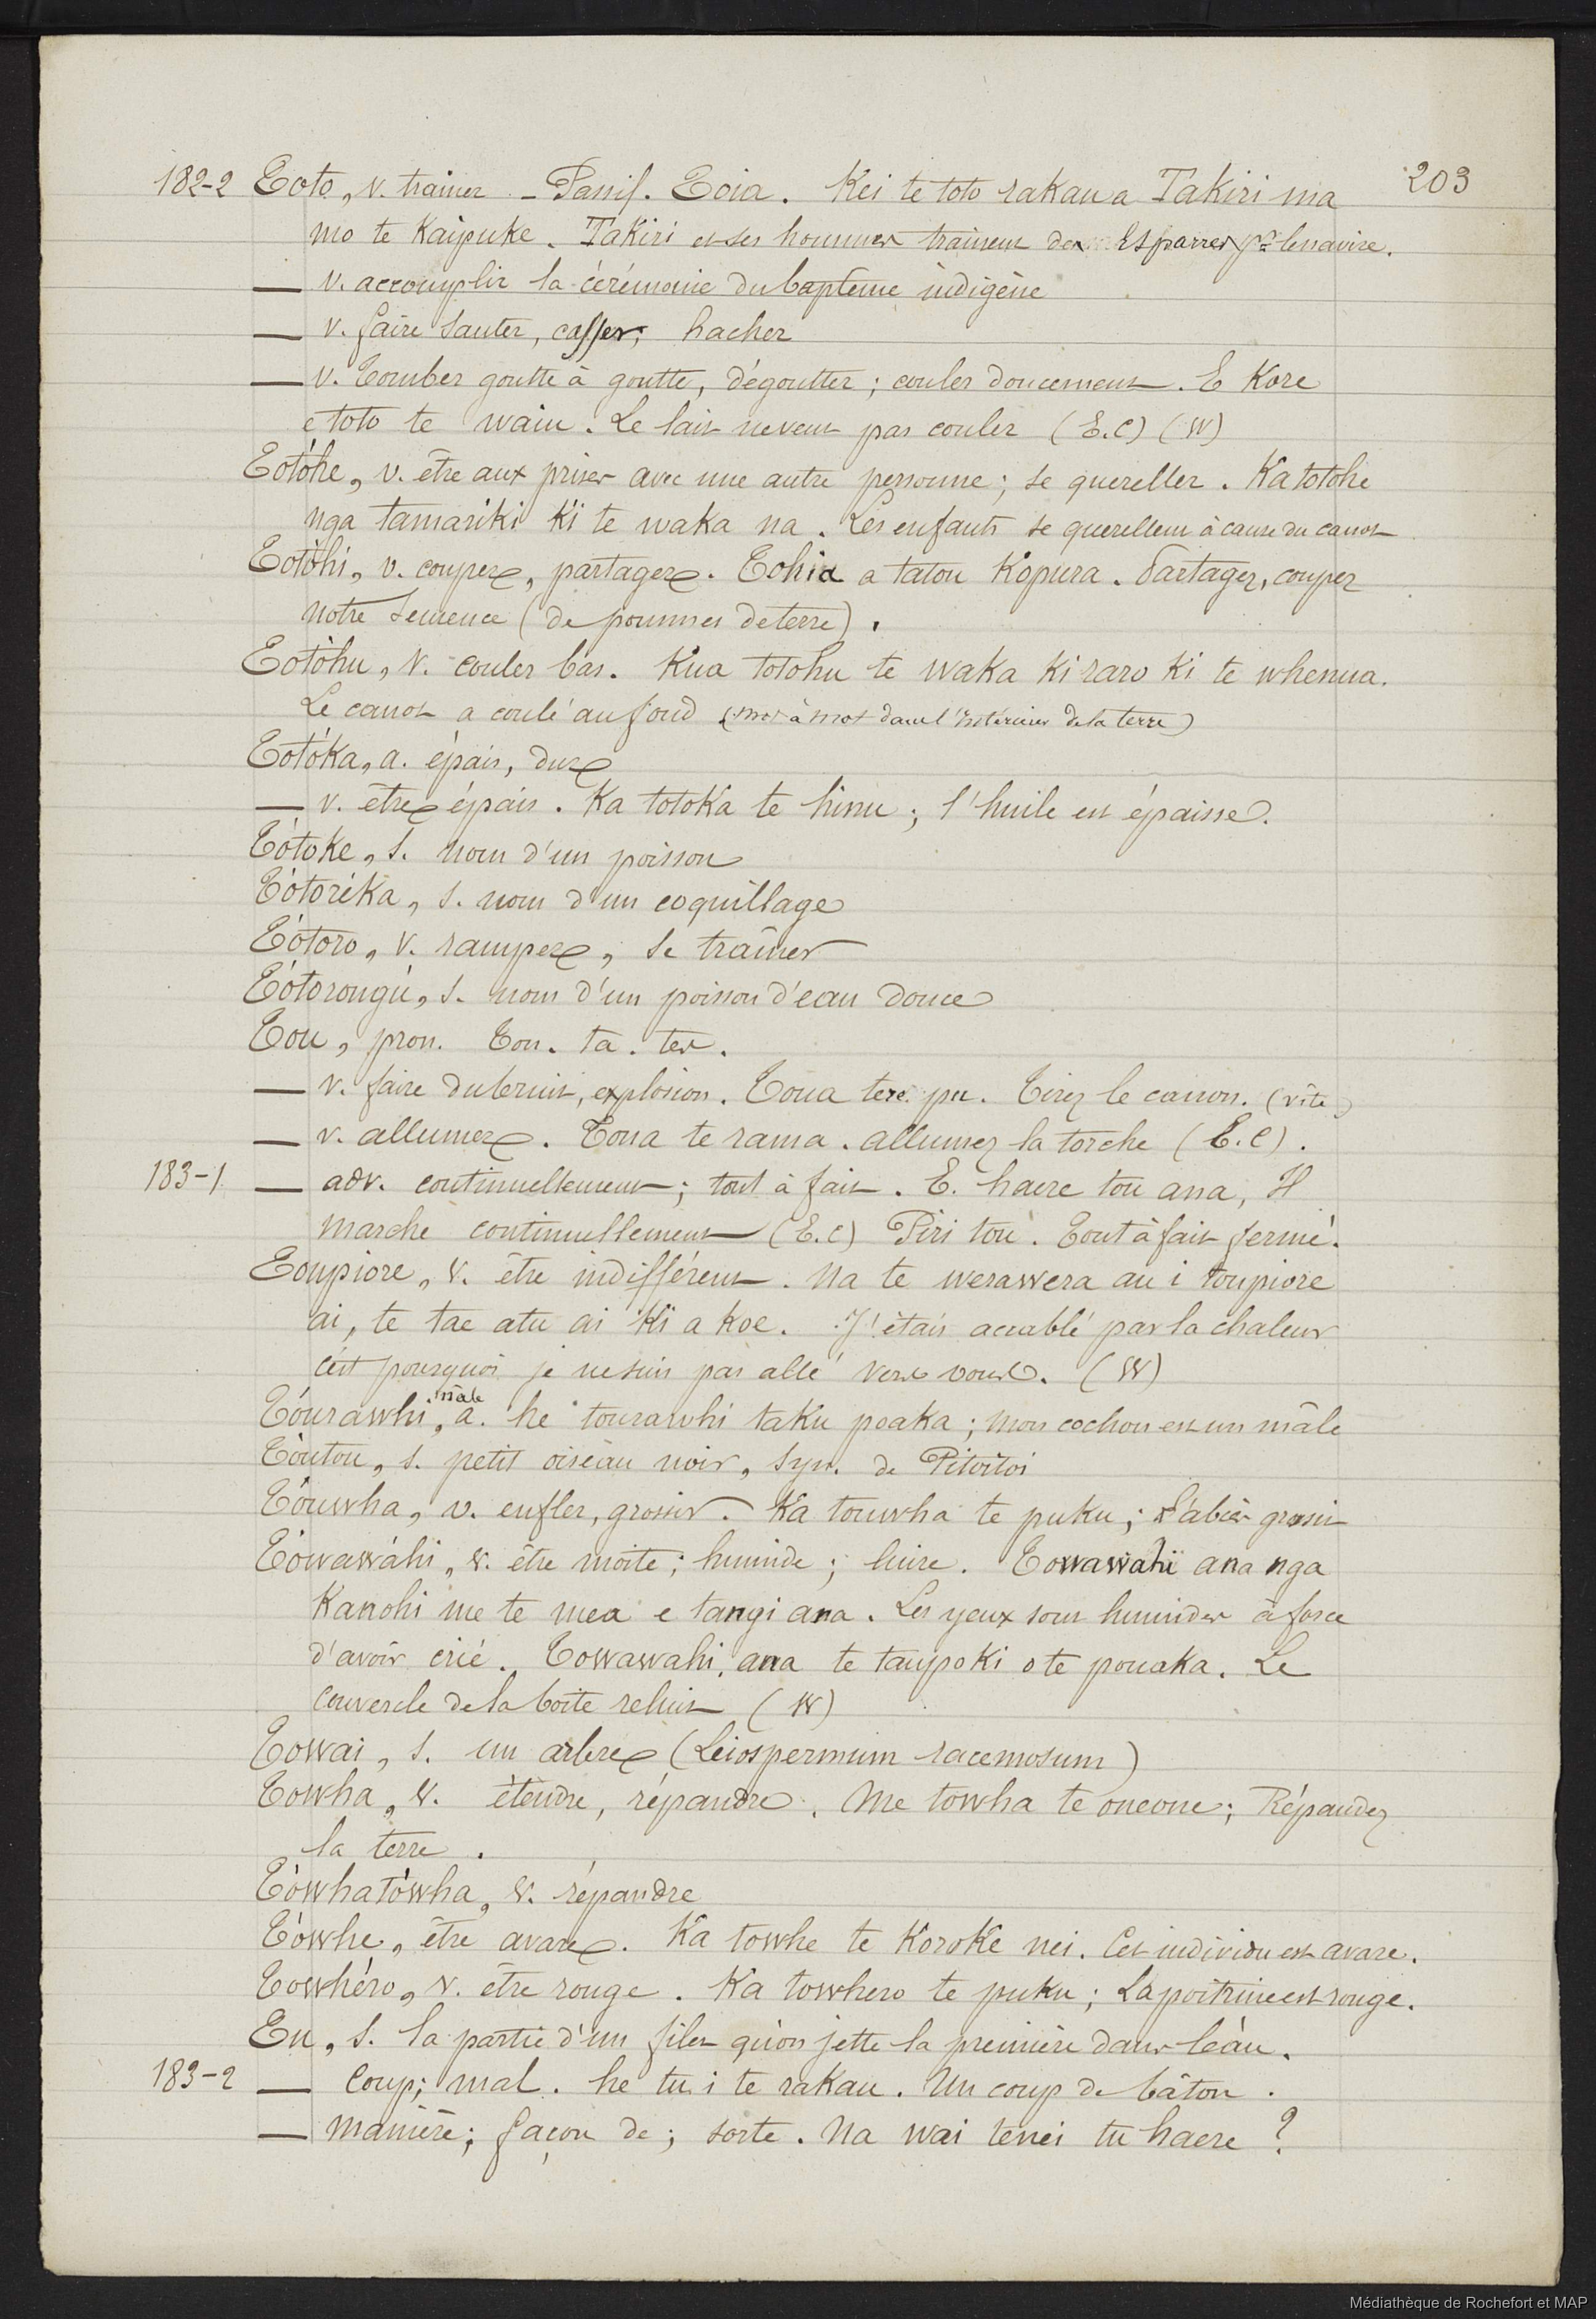 182-2 Toto, v. trainer - Passif. Toia. Kei te toto rakau a Takiri ma 203
mo te Kaipuke. Takiri et ses hommes trainent des Esparres pr le navire.
— v. accomplir la cérémonie du baptême indigène
— v. faire sauter, casser; hacher
— v. Tomber goutte à goutte, dégoutter; couler doucement. E Kore
e toto te waiu. Le lait ne veut pas couler (E.C) (W)
Totóhe, v. être aux prises avec une autre personne; se quereller. Ka totohe
nga tamariki Ki te waka na. Les enfants se querellent à cause du canot
Totòhi, v. couper, partager. Tohia a tatou Kopura. Partagez, coupez
notre semence (de pommes de terre).
Totòhu, v. couler bas. Kua totohu te waka Ki raro Ki te whenua.
Le canot a coulé au fond (mot à mot dans l'intérieur de la terre)
Totóka, a. épais, dur
— v. être épais. Ka totoka te hinu; l'huile est épaisse.
Tótoke, s. nom d'un poisson
Tótoréka, s. nom d'un coquillage
Tótoro, v. ramper, se traîner
Tótorongú, s. nom d'un poisson d'eau douce
Tou, pron. Ton. ta. tes.
— v. faire du bruit, explosion. Toua tere pu. Tirez le canon. (vite)
— v. allumer. Toua te rama. allumez la torche (E.C).
183-1 — adv. continuellement; tout à fait. E. haere tou ana, Il
marche continuellement (E.C) Piri tou. Tout à fait fermé.
Toupiore, v. être indifférent. Na te werawera au i toupiore
ai, te tae atu ai Ki a Koe. J'étais accablé par la chaleur
c'est pourquoi je ne suis pas allé vers vous. (W)
mâle
Tóurawhi, a. he tourawhi taku poaka; mon cochon est un mâle
Tòutou, s. petit oiseau noir, syn. de Pitoitoi
Tóuwha, v. enfler, grossir. Ka touwha te puku; l'abcès grossit
Tówawáhi, v. être moite; humide; luire. Towawahi ana nga
Kanohi me te mea e tangi ana. Les yeux sont humides à force
d'avoir crié. Towawahi, ana te taupoki o te pouaka. Le
couvercle de la boite reluit (W)
Towai, s. un arbre (Leiospermum racemosum)
Towha, v. étendre, répandre. Me towha te oneone; Répandez
la terre.
Tówhatówha, v. répandre
Tówhe, être avare. Ka towhe te Koroke nei. Cet individu est avare.
Towhéro, v. être rouge. Ka towhero te puku; La poitrine est rouge.
Tu, s. la partie d'un filet qu'on jette la première dans l'eau.
183-2 — Coup; mal. he tu i te rakau. Un coup de bâton.
— Manière; façon de; sorte. Na wai tenei tu haere?
Médiathèque de Rochefort et MAP